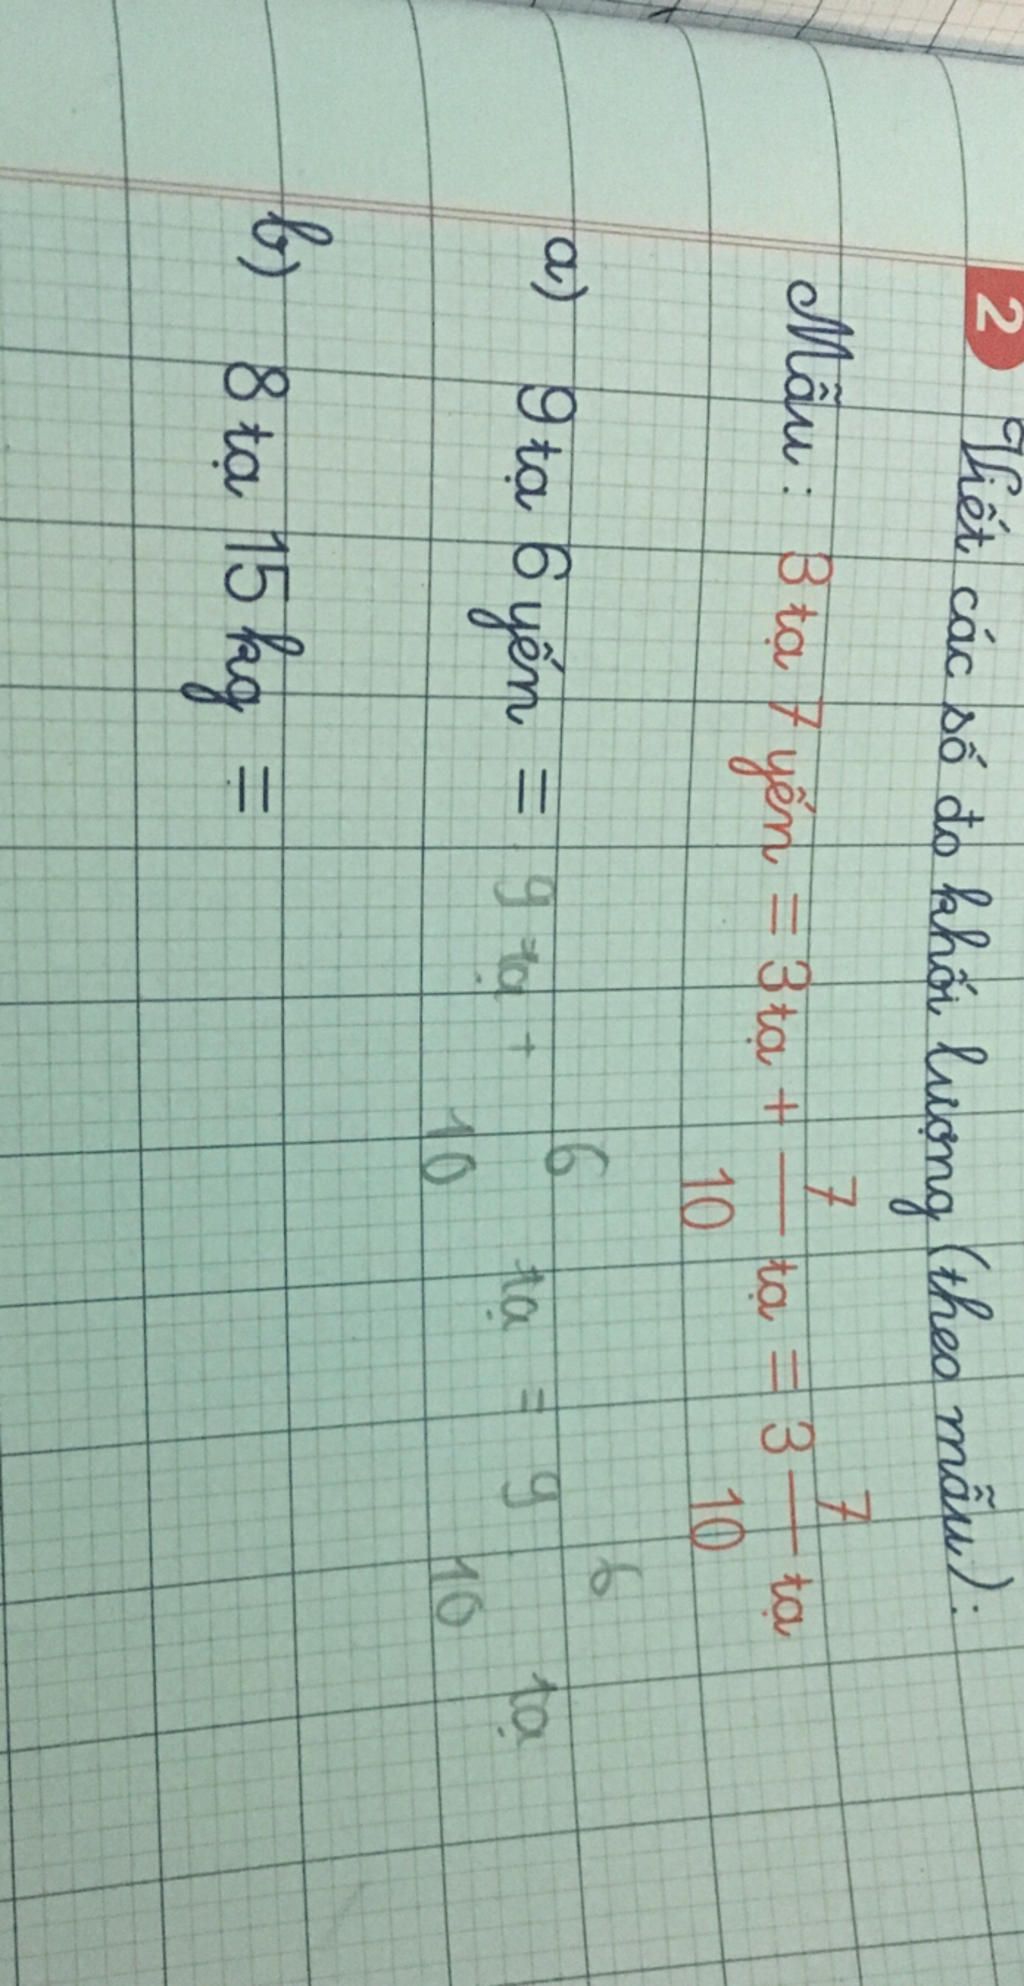 2 Viết các số đo khối lượng (theo mẫu):
Mẫu: 3 tạ 7 yến = 3 tạ + 7/10 tạ = 3 7/10 tạ
a) 9 tạ 6 yến = 9 tạ + 6/10 tạ = 9 6/10 tạ
b) 8 tạ 15 kg =